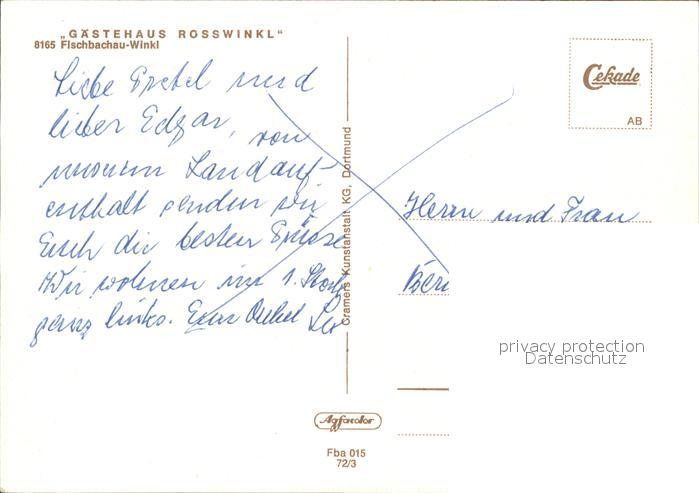 „GÄSTEHAUS ROSSWINKL“
8165 Fischbachau-Winkl
Liebe Gretel und
lieber Edgar, von
unserem Landauf-
enthalt senden wir
Euch die besten Grüsse
Wir wohnen im 1. Stock
ganz links. Euer Onkel
Cramers Kunstanstalt KG, Dortmund
Cekade
AB
Herrn und Frau
privacy protection
Datenschutz
Agfacolor
Fba 015
72/3